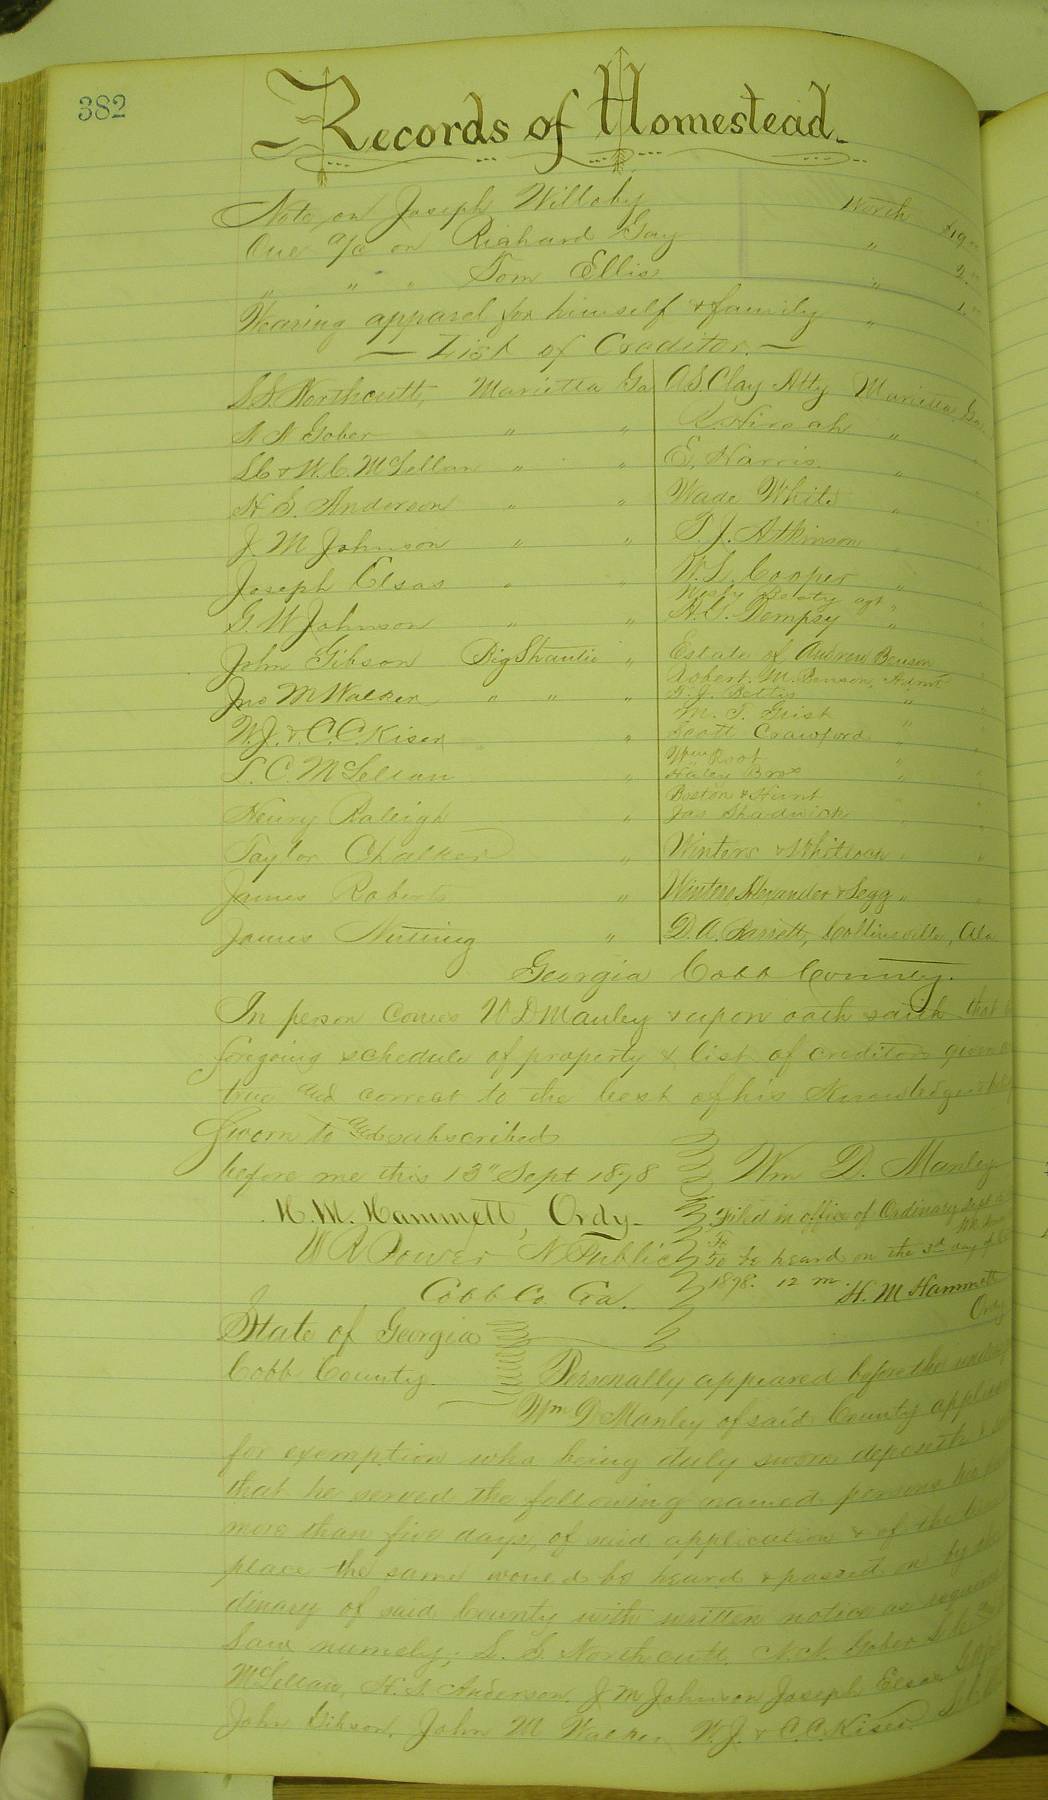 382
Records of Homestead
Note on Joseph Willoby Worth $19
One a/c on Richard Gay " 2
" " " Tom Ellis " 1
Wearing apparel for himself & family "
List of Creditor.
S.S. Northcutt, Marietta Ga A.S. Clay Atty Marietta Ga
N N Gober " " "
L.C & W.C. McLellan " " E. Harris "
H. S. Anderson " " Wade White "
J. M Johnson " " T. J. Atkinson "
Joseph Elsas " " W. L. Cooper "
Wesly Beaty agt "
G. W Johnson " " Dempsy "
John Gibson Big Shantie " Estate of Andrew Benson
Robert. M. Benson, Admr
Jno M Walker " " "
M. T. Grist "
W. J. & C. C. Kiser " Scott Crawford "
Wm Root
T. C. McLellan " Haley Bros "
Boston & Hunt
Henry Raleigh " Jas Shadwick
Taylor Chalker " Winters & Whitlock "
James Roberts " Winters Alexander & Legg "
James Nutting " D. A. Barrett, Collinsville, Ala
Georgia Cobb County.
In person comes W D Manley & upon oath saith that
foregoing schedule of property & list of creditors given
true and correct to the best of his Knowledge &
Sworn to and subscribed
before me this 13" Sept 1878 Wm D. Manley
H. M. Hammett, Ordy. Filed in office of Ordinary Sept
W R Power N Public To be heard on the 3d day of
Cobb Co Ga. 1878. 12 m. H. M Hammett
Ordy
State of Georgia
Cobb County. Personally appeared before the
Wm D Manley of said County
for exemption who being duly sworn deposeth &
that he served the following named persons
more than five days, of said application & of the
place the same would be heard & passed on by
dinary of said County with written notice as
Law namely; S. S. Northcutt. N. N. Gober
McLellan, H. S. Anderson. J M Johnson Joseph Elsas
John Gibson. John M Walker W. J. & C. C. Kiser